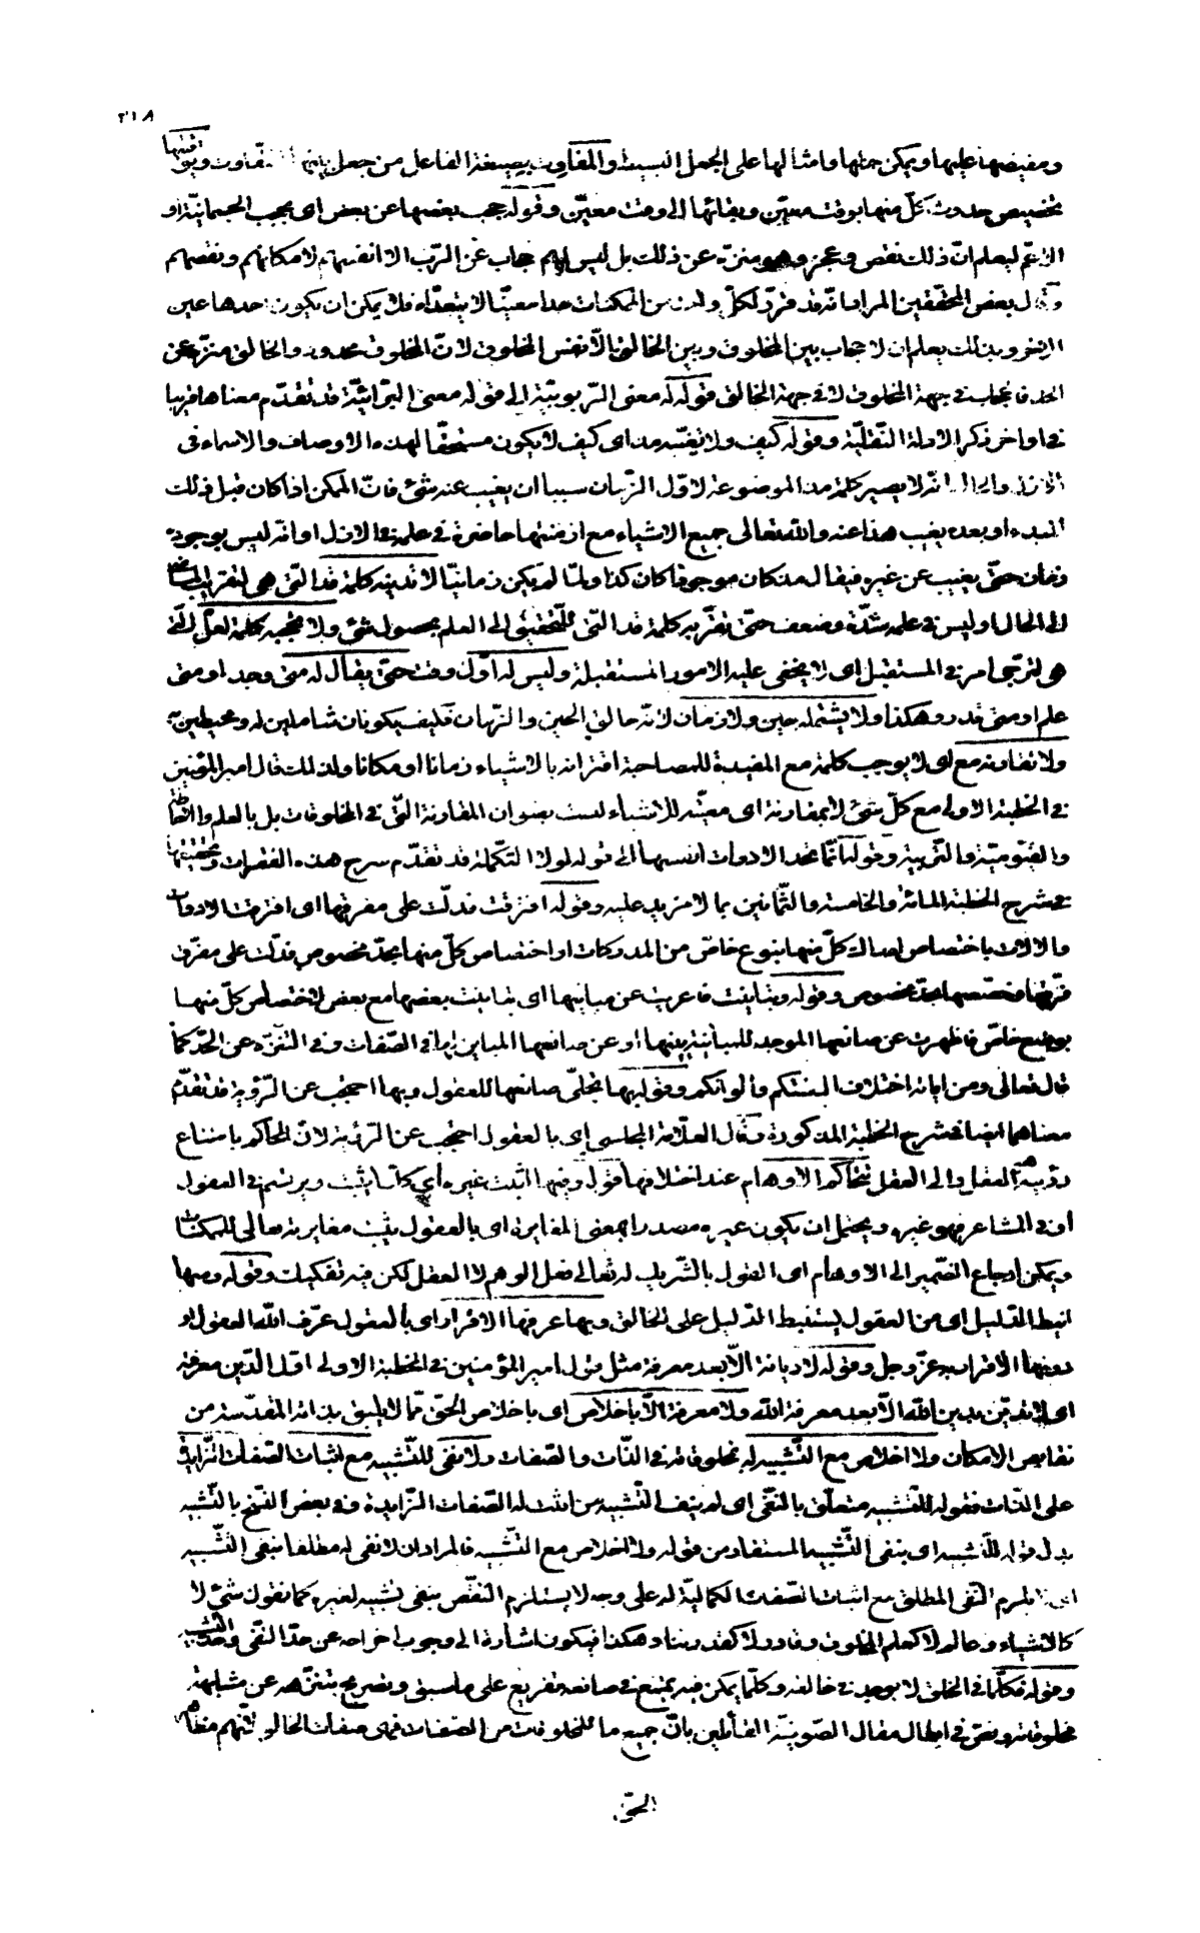 ٢١٨
ومفيضها عليها ويمكن حملها وامثالها على الجعل البسيط والمفاوت بصيغة الفاعل من جعل بينها التفاوت وتوقيتها
تخصيص حدوث كلّ منها بوقت معيّن وبقائها الى وقت معيّن وقوله حجب بعضها عن بعض اى بحجب الجسمانيّة او
الاعمّ ليعلم انّ ذلك نقص وعجز وهو منزّه عن ذلك بل ليس لهم حجاب عن الرّب الا انفسهم لامكانهم ونقصهم
وقال بعض المحققين المراد انّه قد قرّر لكلّ واحد من الممكنات حدا معيّنا لا يتعدّاه فلا يمكن ان يكون احدها عين
الاخر وبذلك يعلم ان لا حجاب بين المخلوق وبين الخالق الّا نفس المخلوق لانّ المخلوق محدود والخالق منزّه عن
الحد فالحجاب فى جهة المخلوق لا فى جهة الخالق قوله له معنى الرّبوبيّة الى قوله معنى البرائيّة قد تقدّم معناها قريبا
فى اواخر ذكر الادلة النّقليّة وقوله كيف ولا تغيّبه مذ اى كيف لا يكون مستحقّا لهذه الاوصاف والاسماء فى
الازل والحال انّه لا يصير كلمة مذ الموضوعة لاوّل الزّمان سببا ان يغيب عنه شئ فانّ الممكن اذا كان قبل ذلك
المبدء او بعده يغيب هذا عنه والله تعالى جميع الاشياء مع ازمنتها حاضرة فى علمه فى الازل او انّه ليس لوجوده
زمان حتّى يغيب عن غيره فيقال مذ كان موجودا كان كذا ولمّا لم يكن زمانيّا لا تدنيه كلمة قد الّتى هى لتقريب الماضى
الى الحال او ليس فى علمه شدّة وضعف حتّى تقرّبه كلمة قد الّتى للتّحقيق الى العلم بحصول شئ ولا تحجبه كلمة لعلّ الّتى
هى لترجّى امر فى المستقبل اى لا يخفى عليه الامور المستقبلة وليس له اوّل وقت حتّى يقال له متى وجد او متى
علم او متى قدر وهكذا ولا يشتمله حين ولا زمان لانّه خالق الحين والزّمان فكيف يكونان شاملين له ومحيطين به
ولا تقارنه مع اى لا يوجب كلمة مع المفيدة للمصاحبة اقترانه بالاشياء زمانا او مكانا ولذلك قال امير المؤمنين
فى الخطبة الاولى مع كلّ شئ لا بمقارنة اى معيّته للاشياء ليست بعنوان المقارنة الّتى فى المخلوقات بل بالعلم والاحاطة
والقيّوميّة والتّربية وقوله انّما تحدّ الادوات انفسها الى قوله لولا التّكملة قد تقدّم شرح هذه الفقرات وتحقيقها
فى شرح الخطبة المائة والخامسة والثّمانين بما لا مزيد عليه وقوله افترقت فدلّت على مفرقها اى افترقت الادوات
والالات باختصاص ادراك كلّ منها بنوع خاصّ من المدركات او اختصاص كلّ منها بحدّ مخصوص فدلّت على مفرّق
فرّقها وخصّصها بحدّ مخصوص وقوله وتباينت فاعربت عن مباينها اى تباينت بعضها مع بعض لاختصاص كلّ منها
بوضع خاصّ فاظهرت عن صانعها الموجد للمباينة بينها او عن صانعها المباين لها فى الصّفات وفى التّنزّه عن الحدّ كما
قال تعالى ومن اياته اختلاف السنتكم والوانكم وقوله بها تجلّى صانعها للعقول وبها احتجب عن الرّؤية قد تقدّم
معناهما ايضا فى شرح الخطبة المذكورة وقال العلّامة المجلسى اى بالعقول احتجب عن الرّؤية لانّ الحاكم بامتناع
رؤيته هو العقل والى العقل تتحاكم الاوهام عند اختلافها قوله وفيها اثبت غيره اى كلّ ما يثبت ويرتسم فى العقول
او فى المشاعر فهو غيره ويحتمل ان يكون غيره مصدرا بمعنى المغايرة اى بالعقول يثبت مغايرته تعالى للممكنات
ويمكن ارجاع الضّمير الى الاوهام اى القول بالشّريك له تعالى فعل الوهم لا العقل لكن فيه تفكيك وقوله ومنها
انيط الدّليل اى من العقول يستنبط الدّليل على الخالق وبها عرفها الاقرار اى بالعقول عرّف الله العقول او
ذويها الاقرار به عزّ وجل وقوله لا ديانة الّا بعد معرفة مثل قول امير المؤمنين فى الخطبة الاولى اوّل الدّين معرفته
اى لا تديّن بدين الله الّا بعد معرفة الله ولا معرفة الّا باخلاص اى باخلاص الحقّ ممّا لا يليق بذاته المقدّسة من
نقايص الامكان ولا اخلاص مع التّشبيه له بمخلوقاته فى الذّات والصّفات ولا نفى للتّشبيه مع اثبات الصّفات الزّايدة
على الذّات فقوله للتّشبيه متعلّق بالنّفى اى لم ينف التّشبيه من اثبت له الصّفات الزّايدة وفى بعض النّسخ بالتّشبيه
بدل قوله للتّشبيه اى بنفى التّشبيه المستفاد من قوله ولا اخلاص مع التّشبيه فالمراد ان لا نفى له مطلقا بنفى التّشبيه
اى لا يلزم النّفى المطلق مع اثبات الصّفات الكماليّة له على وجه لا يستلزم النّقص بنفى تشبيه لغيره كما نقول شئ لا
كالاشياء وعالم لا كعلم المخلوق وقادر لا كقدرتنا وهكذا فيكون اشارة الى وجوب اخراجه عن حدّ النّفى وحدّ التّشبيه
وقوله فكلّما فى الخلق لا يوجد فى خالقه وكلّما يمكن فيه يمتنع فى صانعه تفريع على ما سبق وتصريح بتنزّهه عن مشابهة
مخلوقاته ونصّ فى ابطال مقال الصّوفيّة القائلين بانّ جميع ما للمخلوقات من الصّفات فهى صفات الخالق لانّهم مظاهر
الحقّ